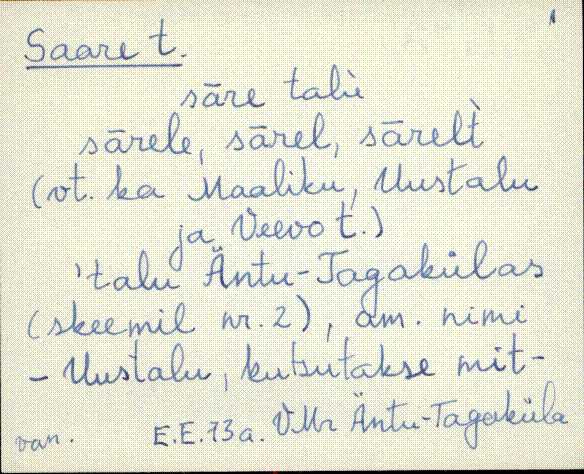 Saare t.
sāre taliì
sārele, sārel, sārelt̀
(vt. ka Maaliku, Uustalu
ja Veevo t.)
'talu Äntu-Tagakülas
(skeemil nr. 2), am. nimi
- Uustalu, kutsutakse mit-
van. E.E.73a. VMr Äntu-Tagaküla